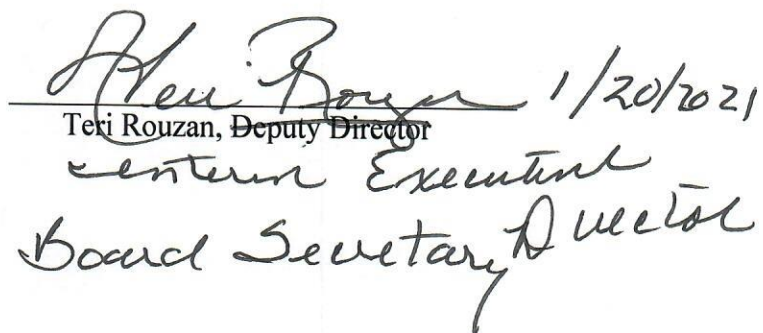 Teri Rouzan 1/20/2021
Teri Rouzan, Deputy Director
Interim Executive
Director
Board Secretary